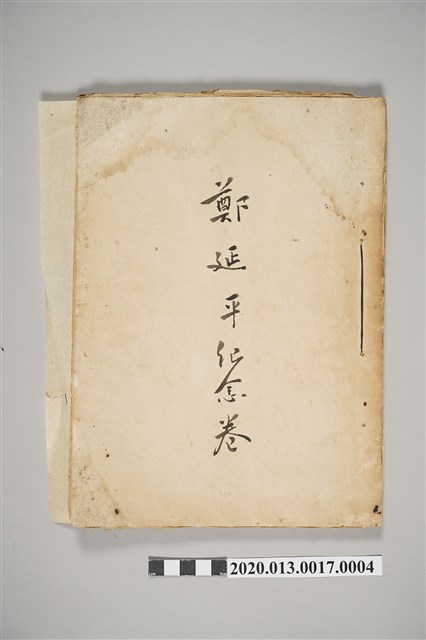 鄭延平紀念卷
2020.013.0017.0004